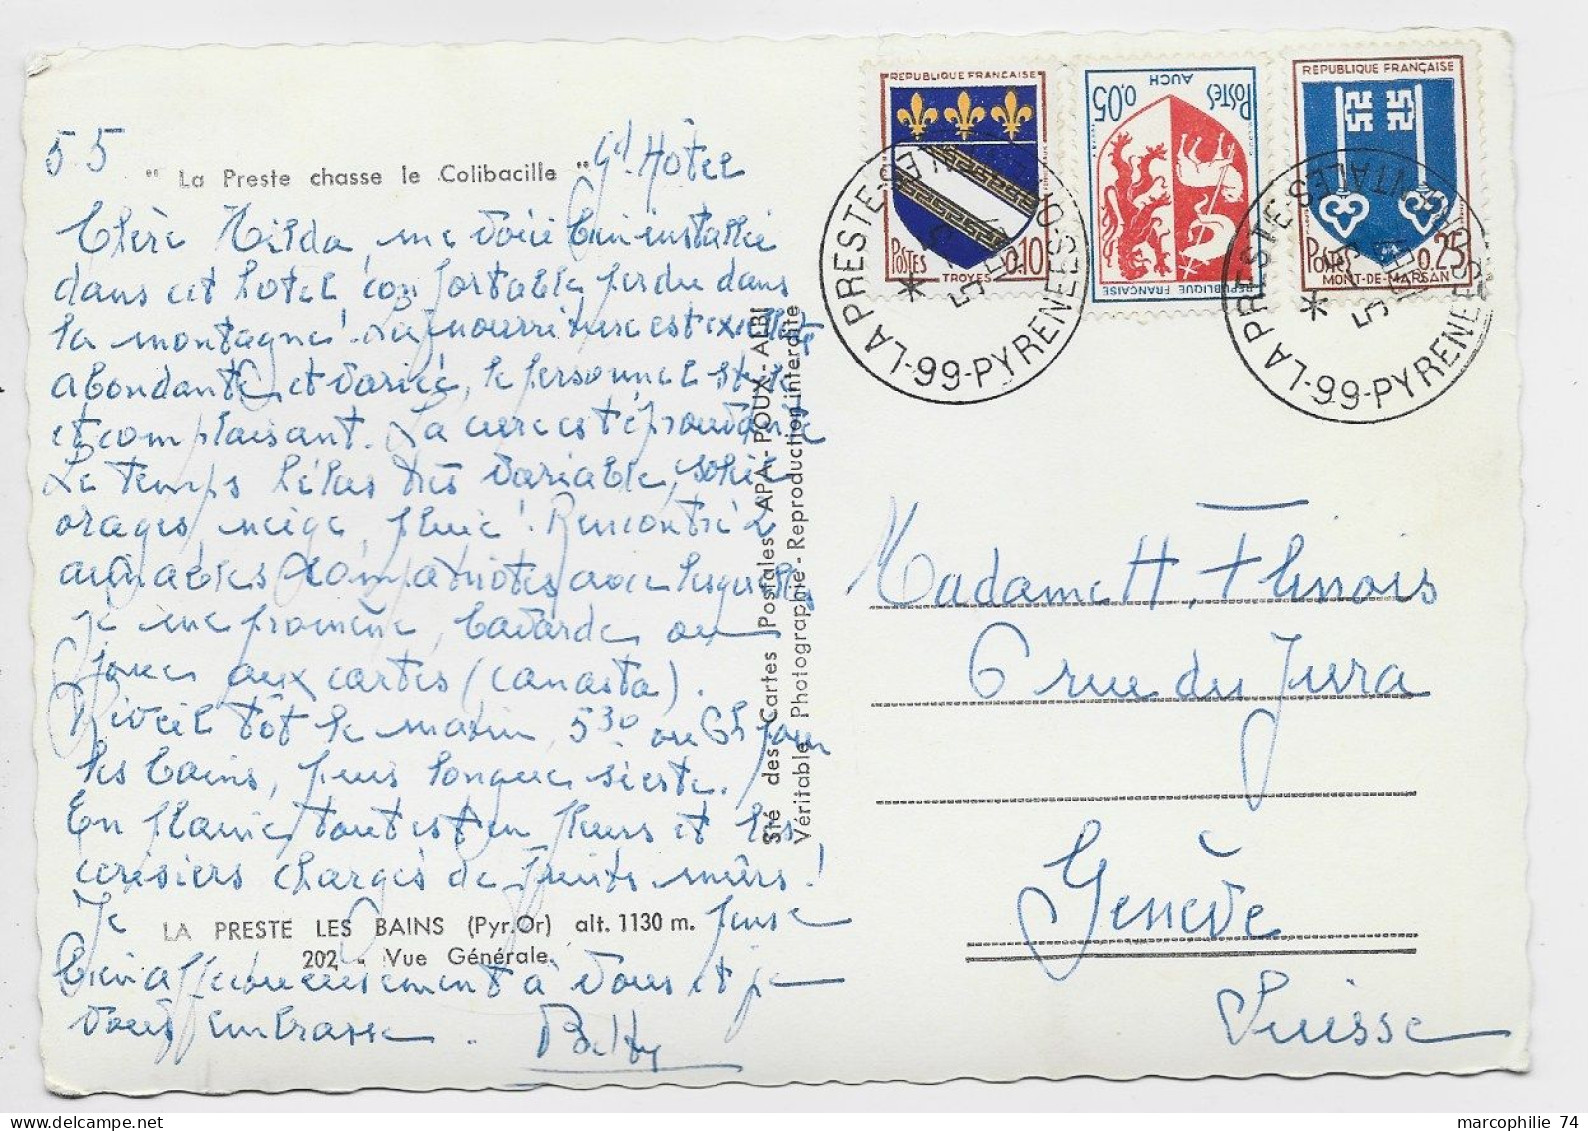 5 5
" La Preste chasse le Colibacille "
Gd. Hôtel
Chère Hilda, me voici bien installée
dans cet hôtel confortable perdu dans
la montagne! La nourriture est excellente
abondante et variée, le personnel stylé
et complaisant. La cure est éprouvante
Le temps hélas très variable, soleil
orages, neige, pluie! Rencontré 2
aimables compatriotes avec lesquelles
je me promène, bavarde ou
joue aux cartes (canasta).
Réveil tôt le matin, 5 30 ou 6h pour
les bains, puis longue sieste.
En plaine, tout est en fleurs et les
cerisiers chargés de fruits mûrs!
Je pense
LA PRESTE LES BAINS (Pyr.Or) alt. 1130 m.
202 - Vue Générale.
bien affectueusement à vous et je
vous embrasse.
Betty
Sté des Cartes Postales APA-POUX - ALBI
Véritable Photographie - Reproduction interdite
REPUBLIQUE FRANÇAISE
POSTES 0,10
TROYES
REPUBLIQUE FRANÇAISE
POSTES 0,05
AUCH
REPUBLIQUE FRANÇAISE
POSTES 0,25
MONT-DE-MARSAN
LA PRESTE-LES-
-99-PYRENEES-O
LA PRESTE-LES-
-99-PYRENEES-ORIENTALES
Madame H. Flinois
6 rue du Jura
Genève
Suisse
marcophilie 74